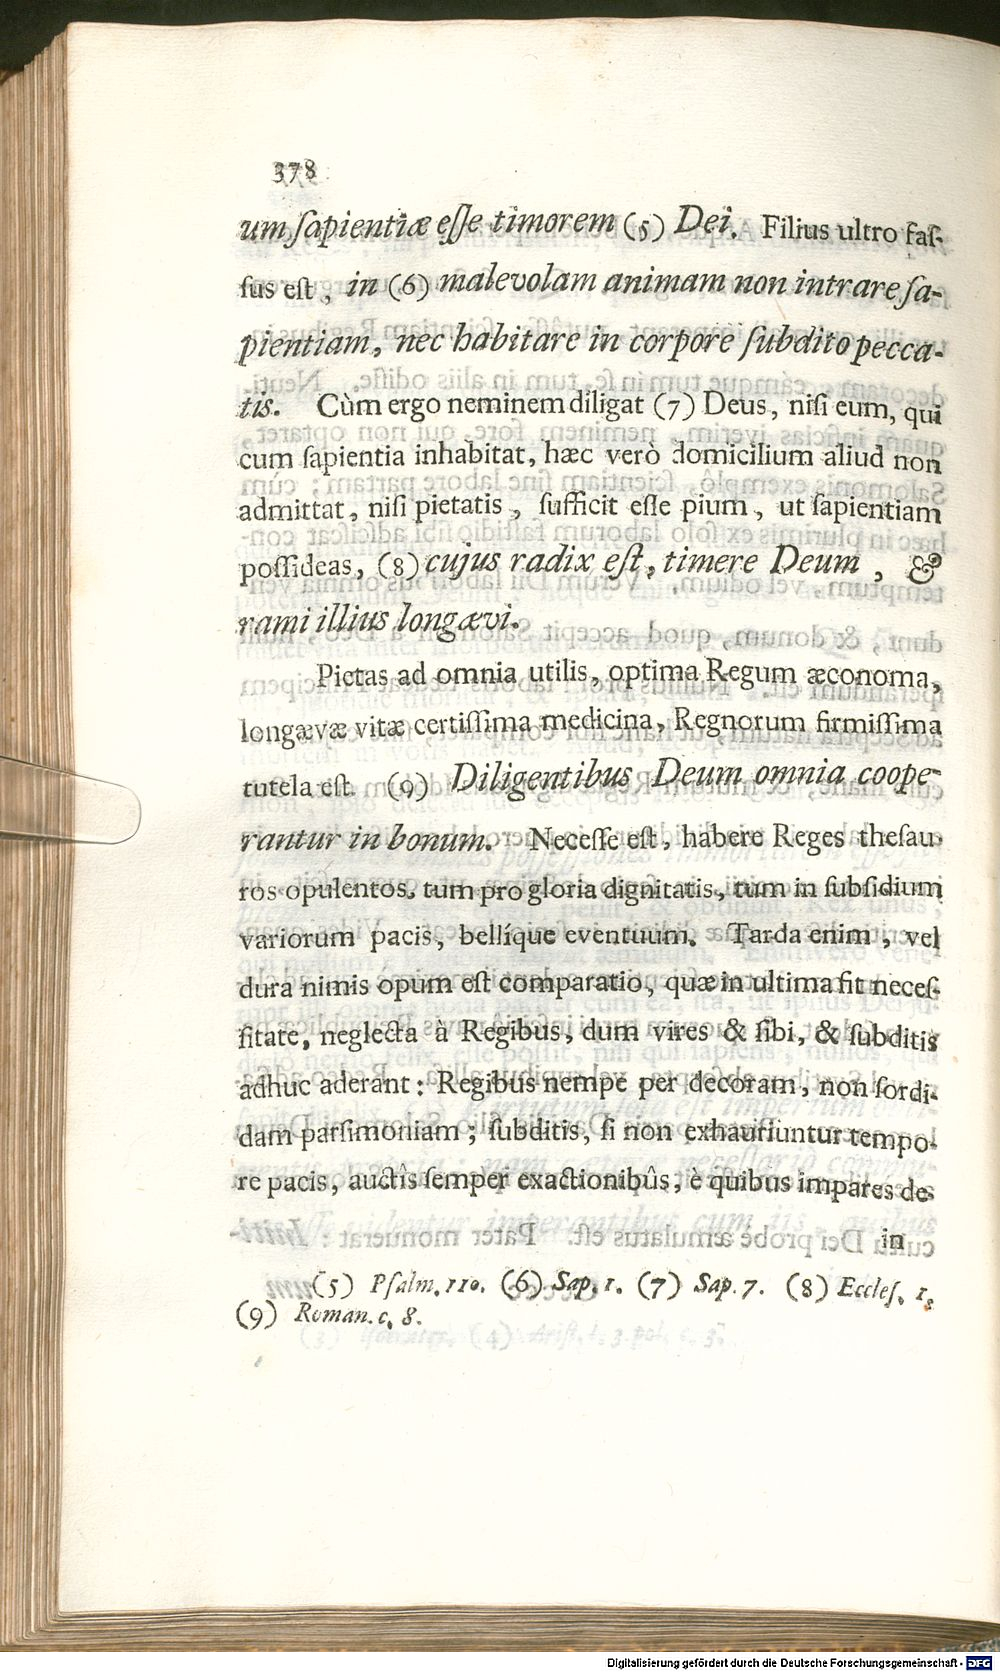 378
um ſapientiæ eſſe timorem (5) Dei. Filius ultro faſ-
ſus eſt, in (6) malevolam animam non intrare ſa-
pientiam, nec habitare in corpore ſubdito pecca-
tis. Cùm ergo neminem diligat (7) Deus, niſi eum, qui
cum ſapientia inhabitat, hæc verò domicilium aliud non
admittat, niſi pietatis, ſufficit eſſe pium, ut ſapientiam
poſſideas, (8) cujus radix eſt, timere Deum, &
rami illius longævi.
Pietas ad omnia utilis, optima Regum æconoma,
longævæ vitæ certiſſima medicina, Regnorum firmiſſima
tutela eſt. (9) Diligentibus Deum omnia coope-
rantur in bonum. Neceſſe eſt, habere Reges theſau-
ros opulentos, tum pro gloria dignitatis, tum in ſubſidium
variorum pacis, bellíque eventuum. Tarda enim, vel
dura nimis opum eſt comparatio, quæ in ultima fit neceſ-
ſitate, neglecta à Regibus, dum vires & ſibi, & ſubditis
adhuc aderant: Regibus nempe per decoram, non ſordi-
dam parſimoniam; ſubditis, ſi non exhauriuntur tempo-
re pacis, auctîs ſemper exactionibûs, è quibus impares de-
in
(5) Pſalm. 110. (6) Sap. 1. (7) Sap. 7. (8) Eccleſ. 1.
(9) Roman. c. 8.
Digitalisierung gefördert durch die Deutsche Forschungsgemeinschaft - DFG